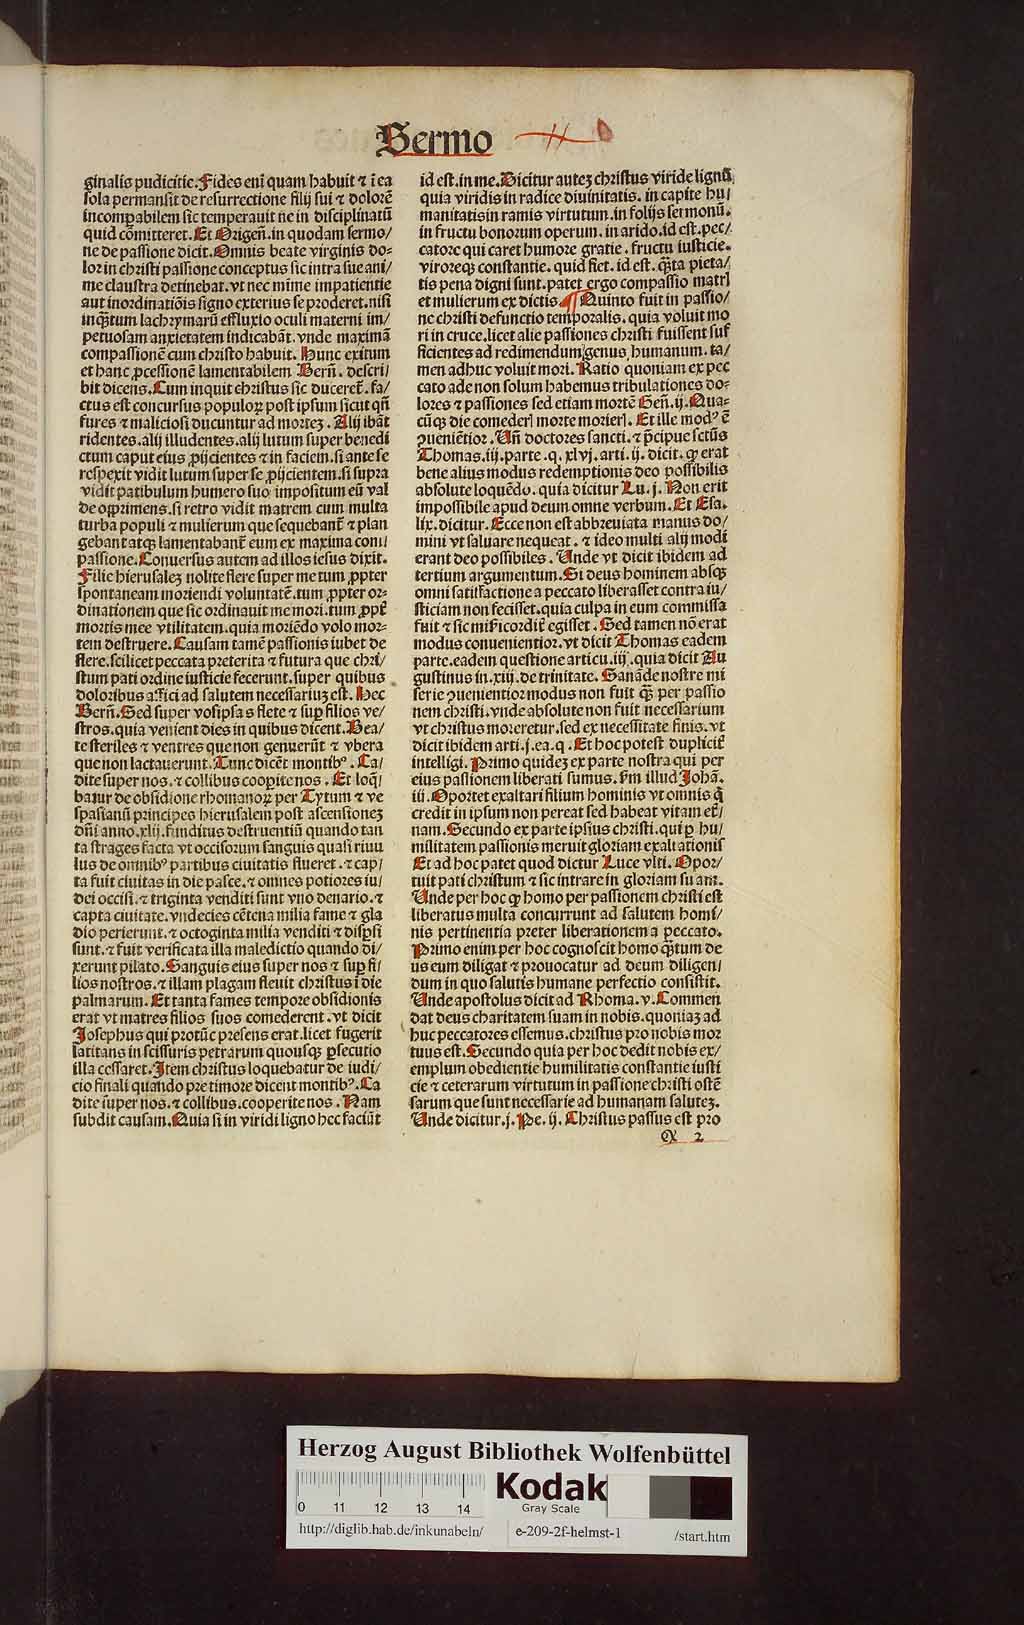 Sermo
ginalis pudicitie. Fides eni quam habuit ⁊ i ea
sola permansit de resurrectione filij sui ⁊ dolorē
incomꝑabilem sic temperauit ne in disciplinatū
quid cōmitteret. Et Origeñ. in quodam sermo/
ne de passione dicit. Omnis beate virginis do-
lor in christi passione conceptus sic intra sue ani/
me claustra detinebat. vt nec mīme impatientie
aut inordinatiōis signo exterius se proderet. nisi
inq̄tum lachrymarū effluxio oculi materni im/
petuosam anxietatem indicabāt. vnde maximā
compassionē cum christo habuit. Hunc exitum
et hanc ꝓcessionē lamentabilem Berñ. descri/
bit dicens. Cum inquit christus sic duceret̄. fa/
ctus est concursus populoꝝ post ipsum sicut qñ
fures ⁊ maliciosi ducuntur ad mortez. Alij ibāt
ridentes. alij illudentes. alij lutum super benedi
ctum caput eius ꝓijcientes ⁊ in faciem. si ante se
respexit vidit lutum super se ꝓijcientem. si supra
vidit patibulum humero suo impositum eū val
de opprimens. si retro vidit matrem cum multa
turba populi ⁊ mulierum que sequebanṫ ⁊ plan
gebant atqꝫ lamentabanṫ eum ex maxima com/
passione. Conuersus autem ad illos iesus dixit.
Filie hierusalez nolite flere super me tum ꝓpter
spontaneam moriendi voluntatē. tum ꝓpter or-
dinationem que sic ordinauit me mori. tum ꝓpt̄
mortis mee vtilitatem. quia moriēdo volo mor-
tem destruere. Causam tamē passionis iubet de
flere. scilicet peccata preterita ⁊ futura que chri/
stum pati ordine iusticie fecerunt. super quibus
doloribus affici ad salutem necessariuz est. Hec
Berñ. Sed super vosipsas flete ⁊ suꝑ filios ve/
stros. quia venient dies in quibus dicent. Bea/
te steriles ⁊ ventres que non genuerūt ⁊ vbera
que non lactauerunt. Tunc dicēt montibꝰ. Ca/
dite super nos. ⁊ collibus cooperite nos. Et loq̄/
batur de obsidione rhomanoꝝ per Tytum ⁊ ve
spasianū principes hierusalem post ascensionez
dñi anno. xlij. funditus destruentiū quando tan
ta strages facta vt occisorum sanguis quasi riuu
lus de omnibꝰ partibus ciuitatis flueret. ⁊ cap/
ta fuit ciuitas in die pasce. ⁊ omnes potiores iu/
dei occisi. ⁊ triginta venditi sunt vno denario. ⁊
capta ciuitate. vndecies cētena milia fame ⁊ gla
dio perierunt. ⁊ octoginta milia venditi ⁊ disꝑsi
sunt. ⁊ fuit verificata illa maledictio quando di/
xerunt pilato. Sanguis eius super nos ⁊ suꝑ fi/
lios nostros. ⁊ illam plagam fleuit christus i die
palmarum. Et tanta fames tempore obsidionis
erat vt matres filios suos comederent. vt dicit
Josephus qui protūc presens erat. licet fugerit
latitans in scissuris petrarum quousqꝫ ꝑsecutio
illa cessaret. Item christus loquebatur de iudi/
cio finali quando pre timore dicent montibꝰ. Ca
dite super nos. ⁊ collibus. cooperite nos. Nam
subdit causam. Quia si in viridi ligno hec faciūt
id est. in me. Dicitur autez christus viride lignū
quia viridis in radice diuinitatis. in capite hu/
manitatis in ramis virtutum. in folijs sermonū.
in fructu bonorum operum. in arido. id est. pec/
catore qui caret humore gratie. fructu iusticie.
viroreqꝫ constantie. quid fiet. id est. q̄ta pieta/
tis pena digni sunt. patet ergo compassio matr̄
et mulierum ex dictis ¶ Quinto fuit in passio/
ne christi defunctio temporalis. quia voluit mo
ri in cruce. licet alie passiones christi fuissent suf
ficientes ad redimendum genus humanum. ta/
men adhuc voluit mori. Ratio quoniam ex pec
cato ade non solum habemus tribulationes do-
lores ⁊ passiones sed etiam mortē Geñ. ij. Qua-
cūqꝫ die comeder̄ morte morier̄. Et ille modꝰ ē
ꝯueniētior. Uñ doctores sancti. ⁊ p̄cipue sctūs
Thomas. iij. parte. q. xlvj. arti. ij. dicit. ꝙ erat
bene alius modus redemptionis deo possibilis
absolute loquēdo. quia dicitur Lu. j. Non erit
impossibile apud deum omne verbum. Et Esa.
lix. dicitur. Ecce non est abbreuiata manus do/
mini vt saluare nequeat. ⁊ ideo multi alij modi
erant deo possibiles. Unde vt dicit ibidem ad
tertium argumentum. Si deus hominem absqꝫ
omni satisfactione a peccato liberasset contra iu/
sticiam non fecisset. quia culpa in eum commissa
fuit ⁊ sic miẜicordiē egisset. Sed tamen nō erat
modus conuenientior. vt dicit Thomas eadem
parte. eadem questione articu. iij. quia dicit Au
gustinus in. xiij. de trinitate. Sanāde nostre mi
serie ꝯuenientior modus non fuit q̄ꝫ per passio
nem christi. vnde absolute non fuit necessarium
vt christus moreretur. sed ex necessitate finis. vt
dicit ibidem arti. j. ea. q. Et hoc potest duplicit̄
intelligi. Primo quidez ex parte nostra qui per
eius passionem liberati sumus. ẜm illud Johā.
iij. Oportet exaltari filium hominis vt omnis q̄
credit in ipsum non pereat sed habeat vitam et̄/
nam. Secundo ex parte ipsius christi. qui ꝑ hu/
militatem passionis meruit gloriam exaltationis
Et ad hoc patet quod dictur Luce vlti. Opor/
tuit pati christum ⁊ sic intrare in gloriam suam.
Unde per hoc ꝙ homo per passionem christi est
liberatus multa concurrunt ad salutem homi/
nis pertinentia preter liberationem a peccato.
Primo enim per hoc cognoscit homo q̄tum de
us eum diligat ⁊ prouocatur ad deum diligen/
dum in quo salutis humane perfectio consistit.
Unde apostolus dicit ad Rhoma. v. Commen
dat deus charitatem suam in nobis. quoniaz ad
huc peccatores essemus. christus pro nobis mor
tuus est. Secundo quia per hoc dedit nobis ex/
emplum obedientie humilitatis constantie iusti
cie ⁊ ceterarum virtutum in passione christi ostē
sarum que sunt necessarie ad humanam salutez.
Unde dicitur. j. Pe. ij. Christus passus est pro
X 2
Herzog August Bibliothek Wolfenbüttel
0 11 12 13 14
Kodak
Gray Scale
http://diglib.hab.de/inkunabeln/ e-209-2f-helmst-1 /start.htm